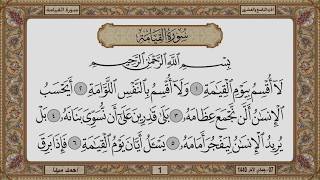 سورة القيامة
سُورَةُ القِيَامَةِ
بِسْمِ اللَّهِ الرَّحْمَٰنِ الرَّحِيمِ
لَا أُقْسِمُ بِيَوْمِ الْقِيَٰمَةِ ١ وَلَا أُقْسِمُ بِالنَّفْسِ اللَّوَّامَةِ ٢ أَيَحْسَبُ
الْإِنسَٰنُ أَلَّن نَّجْمَعَ عِظَامَهُۥ ٣ بَلَىٰ قَٰدِرِينَ عَلَىٰ أَن نُّسَوِّيَ بَنَانَهُۥ ٤ بَلْ
يُرِيدُ الْإِنسَٰنُ لِيَفْجُرَ أَمَامَهُۥ ٥ يَسْـَٔلُ أَيَّانَ يَوْمُ الْقِيَٰمَةِ ٦ فَإِذَا بَرِقَ
1